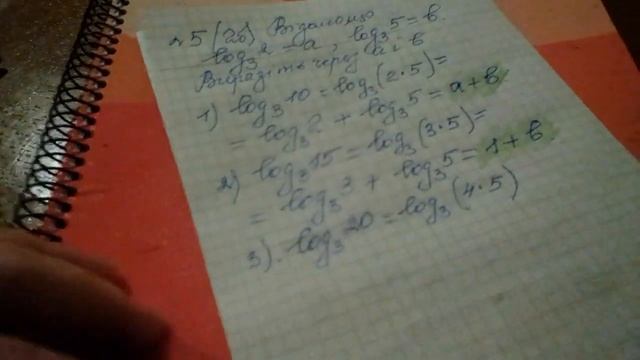 №5 (2б)
log₃2 = a, log₃5 = b.
Виразити через a і b
1) log₃10 = log₃(2·5) =
= log₃2 + log₃5 = a + b
2) log₃15 = log₃(3·5) =
= log₃3 + log₃5 = 1 + b
3). log₃20 = log₃(4·5)